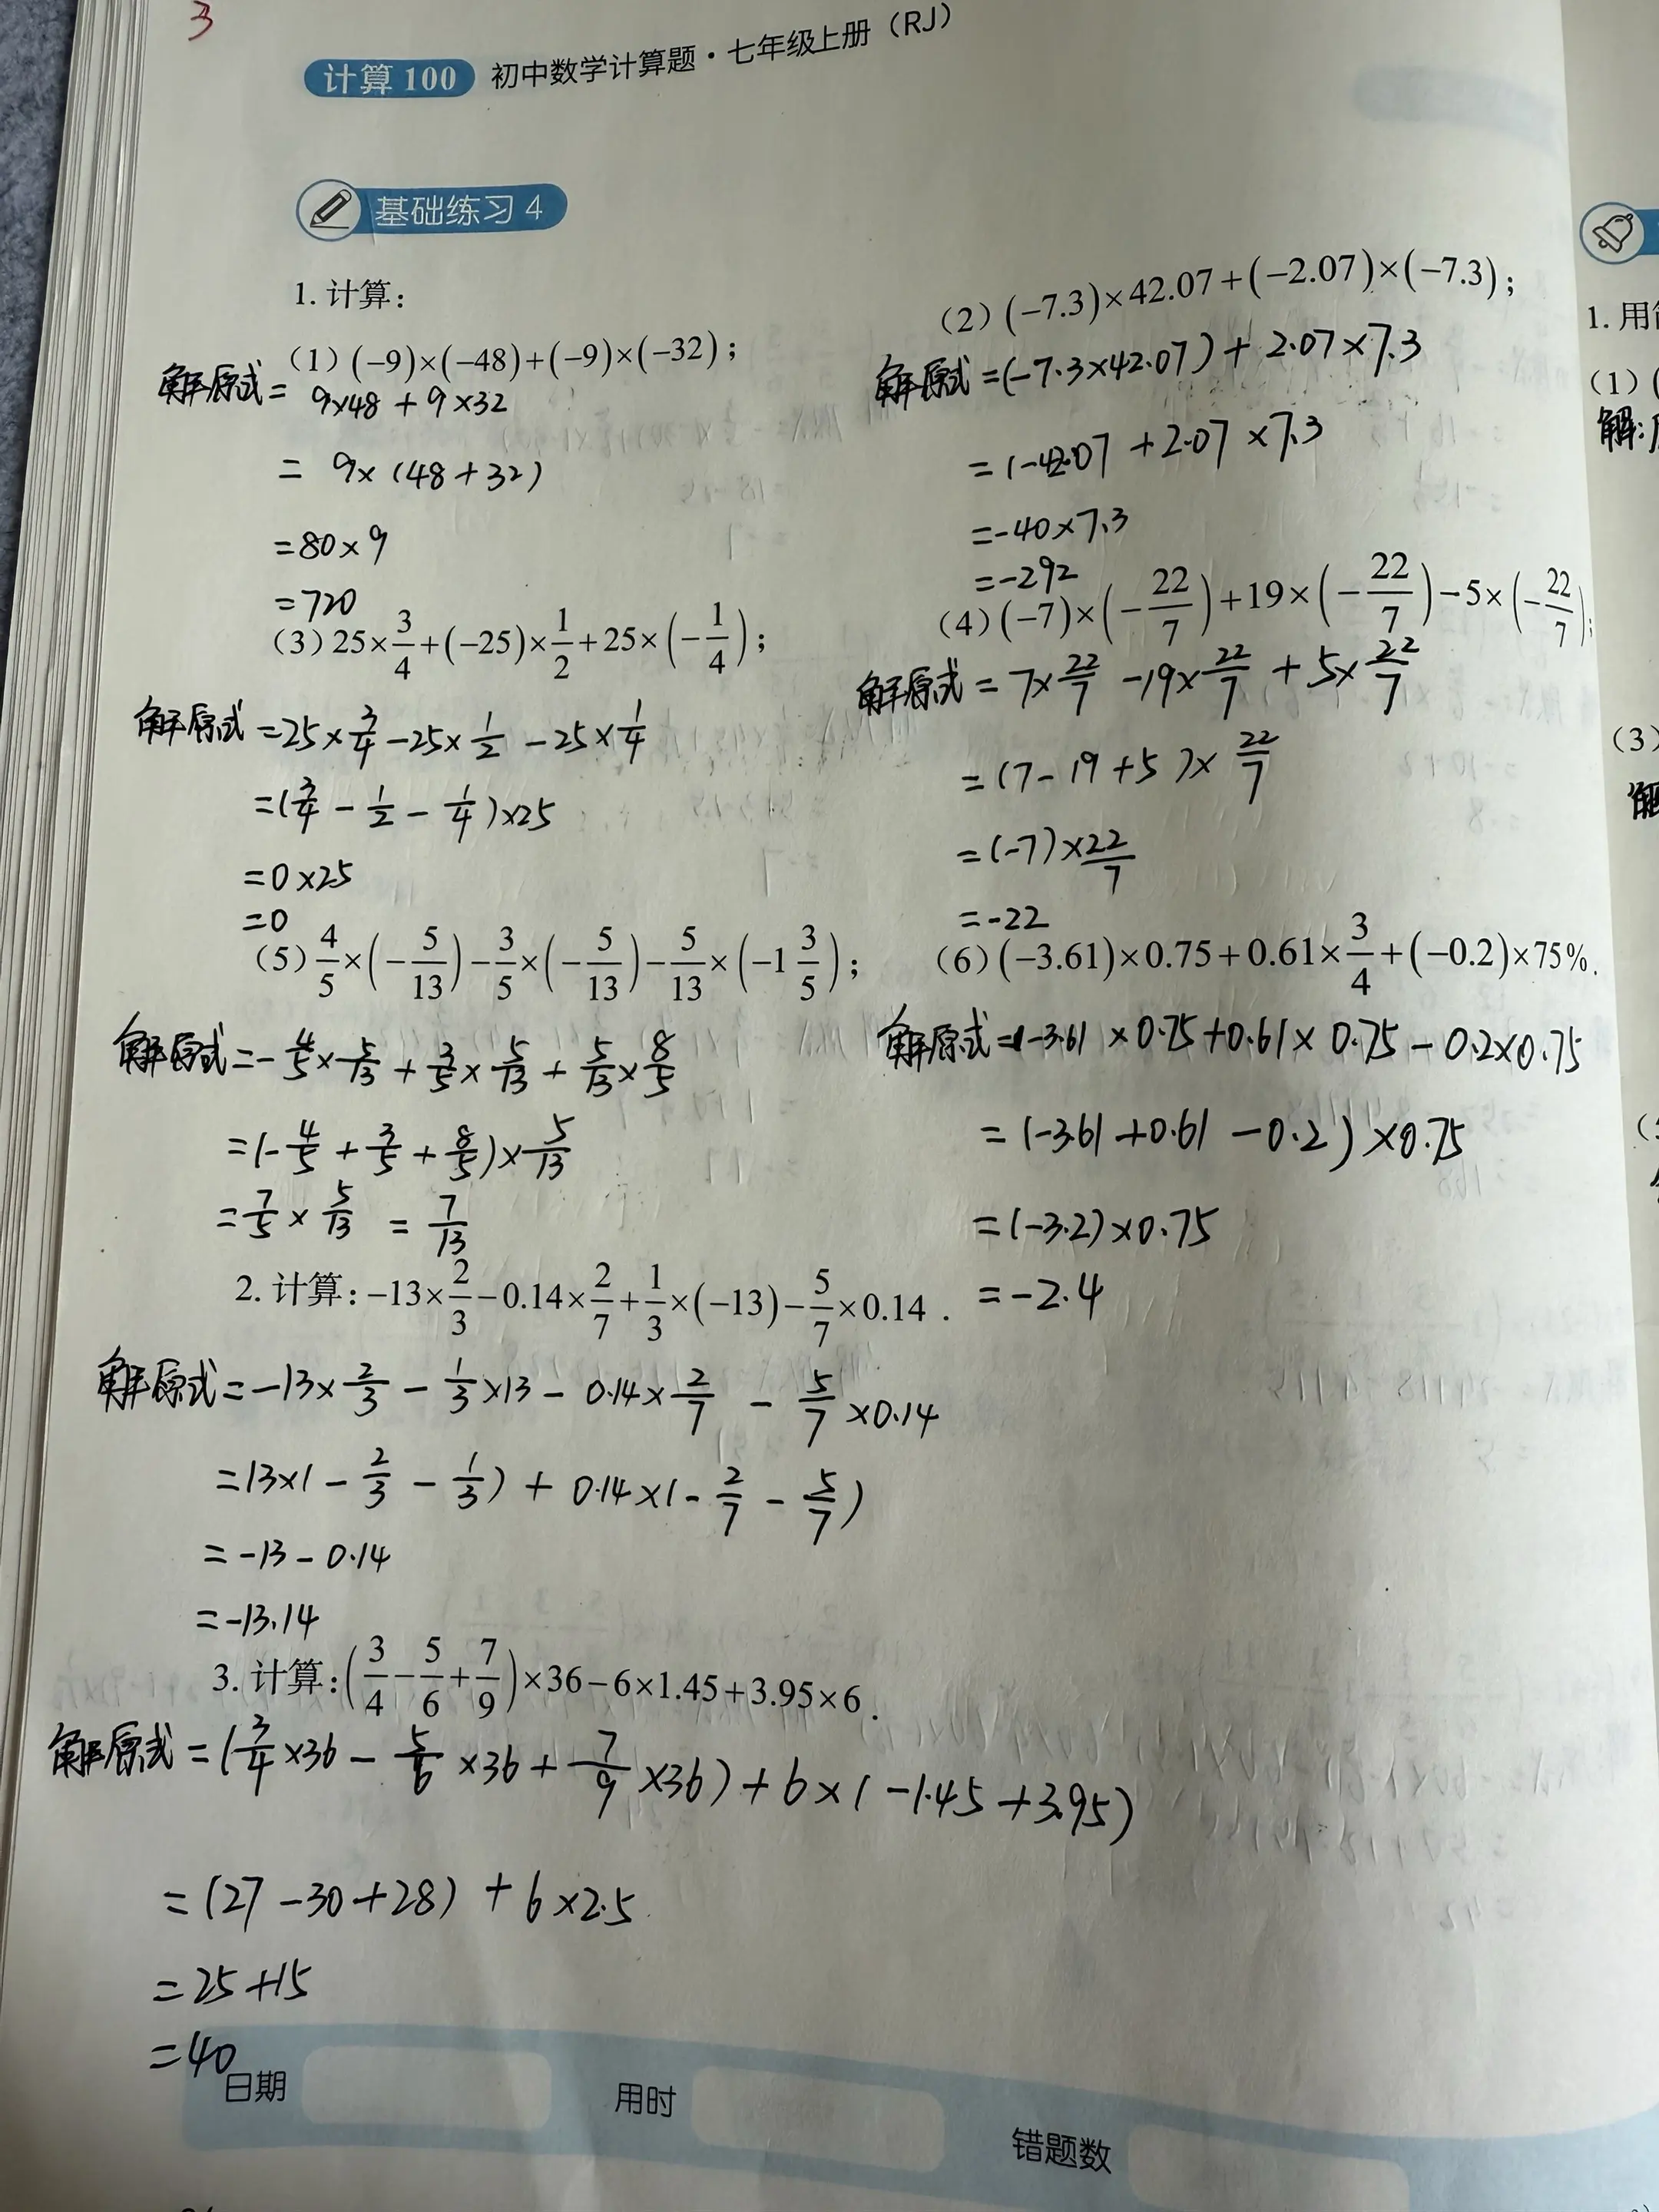 3
计算 100 初中数学计算题·七年级上册（RJ）
基础练习 4
1. 计算：
（1）(−9)×(−48)+(−9)×(−32)；
解原式= 9×48 + 9×32
= 9×(48+32)
=80×9
=720
（2）(−7.3)×42.07+(−2.07)×(−7.3)；
解原式=(-7.3×42.07)+2.07×7.3
=(-42.07+2.07×7.3
=-40×7.3
=-292
（3）25×3/4+(−25)×1/2+25×(−1/4)；
解原式=25×3/4-25×1/2-25×1/4
=(3/4-1/2-1/4)×25
=0×25
=0
（4）(−7)×(−22/7)+19×(−22/7)−5×(−22/7)；
解原式=7×22/7-19×22/7+5×22/7
=(7-19+5)×22/7
=(-7)×22/7
=-22
（5）4/5×(−5/13)−3/5×(−5/13)−5/13×(−1 3/5)；
解原式=-4/5×5/13+3/5×5/13+5/13×8/5
=(-4/5+3/5+8/5)×5/13
=7/5×5/13=7/13
（6）(−3.61)×0.75+0.61×3/4+(−0.2)×75%.
解原式=-3.61×0.75+0.61×0.75-0.2×0.75
=(-3.61+0.61-0.2)×0.75
=(-3.2)×0.75
=-2.4
2. 计算：−13×2/3−0.14×2/7+1/3×(−13)−5/7×0.14．
解原式=-13×2/3-1/3×13-0.14×2/7-5/7×0.14
=13×(-2/3-1/3)+0.14×(-2/7-5/7)
=-13-0.14
=-13.14
3. 计算：(3/4−5/6+7/9)×36−6×1.45+3.95×6．
解原式=(3/4×36-5/6×36+7/9×36)+6×(-1.45+3.95)
=(27-30+28)+6×2.5
=25+15
=40
日期 用时 错题数
1. 用
（1）(
解:
（3）